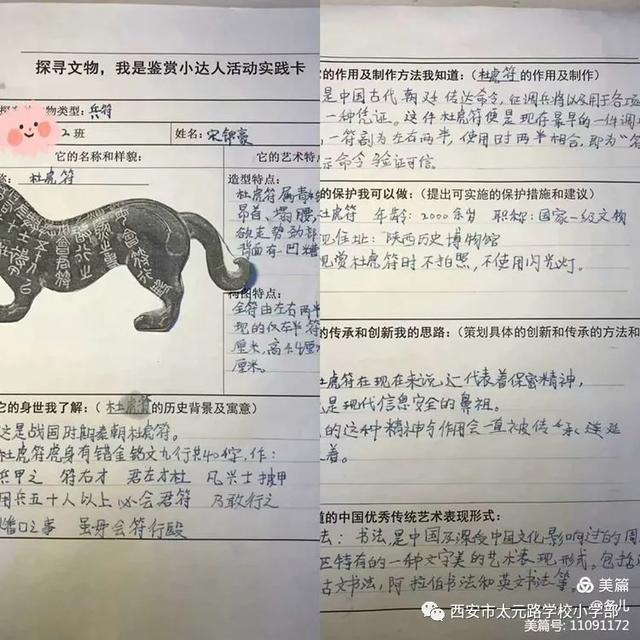 探寻文物，我是鉴赏小达人活动实践卡
物类型：兵符
2班
姓名：宋锦豪
它的名称和样貌：
它的艺术特
称：杜虎符
造型特点：
杜虎符属青
昂首，塌腰，
欲走势动
背面有凹槽
构图特点：
全符由左右两半
现的仅左半符
厘米，高4.4厘
厘米。
它的身世我了解：（杜虎符的历史背景及寓意）
这是战国时期秦朝杜虎符。
杜虎符虎身有错金铭文九行共40字，作：
兵甲之 符右才 君左才杜 凡兴士披甲
用兵五十人以上 必会君符 乃敢行之
燔口之事 虽毋会符行殹
它的作用及制作方法我知道：（杜虎符的作用及制作）
是中国古代朝对传达命令，征调兵将以及用于各项
一种凭证。这件杜虎符便是现存最早的一件调
一符剖为左右两半，使用时两半相合，即为“符
示命令验证可信。
的保护我可以做：（提出可实施的保护措施和建议）
杜虎符 年龄：2000余岁 职称：国家一级文物
现住址：陕西历史博物馆
观爱杜虎符时不拍照，不使用闪光灯。
的传承和创新我的思路：（策划具体的创新和传承的方法和
杜虎符在现在来说，它代表着保密精神，
是现代信息安全的鼻祖。
的这种精神与作用会一直被传承延
着。
道的中国优秀传统艺术表现形式：
法：书法，是中国及深受中国文化影响过的周
区特有的一种文字美的艺术表现形式。包括
古文书法，阿拉伯书法和英文书法等。
美篇
@冬儿
西安市太元路学校小学部
美篇号：11091172